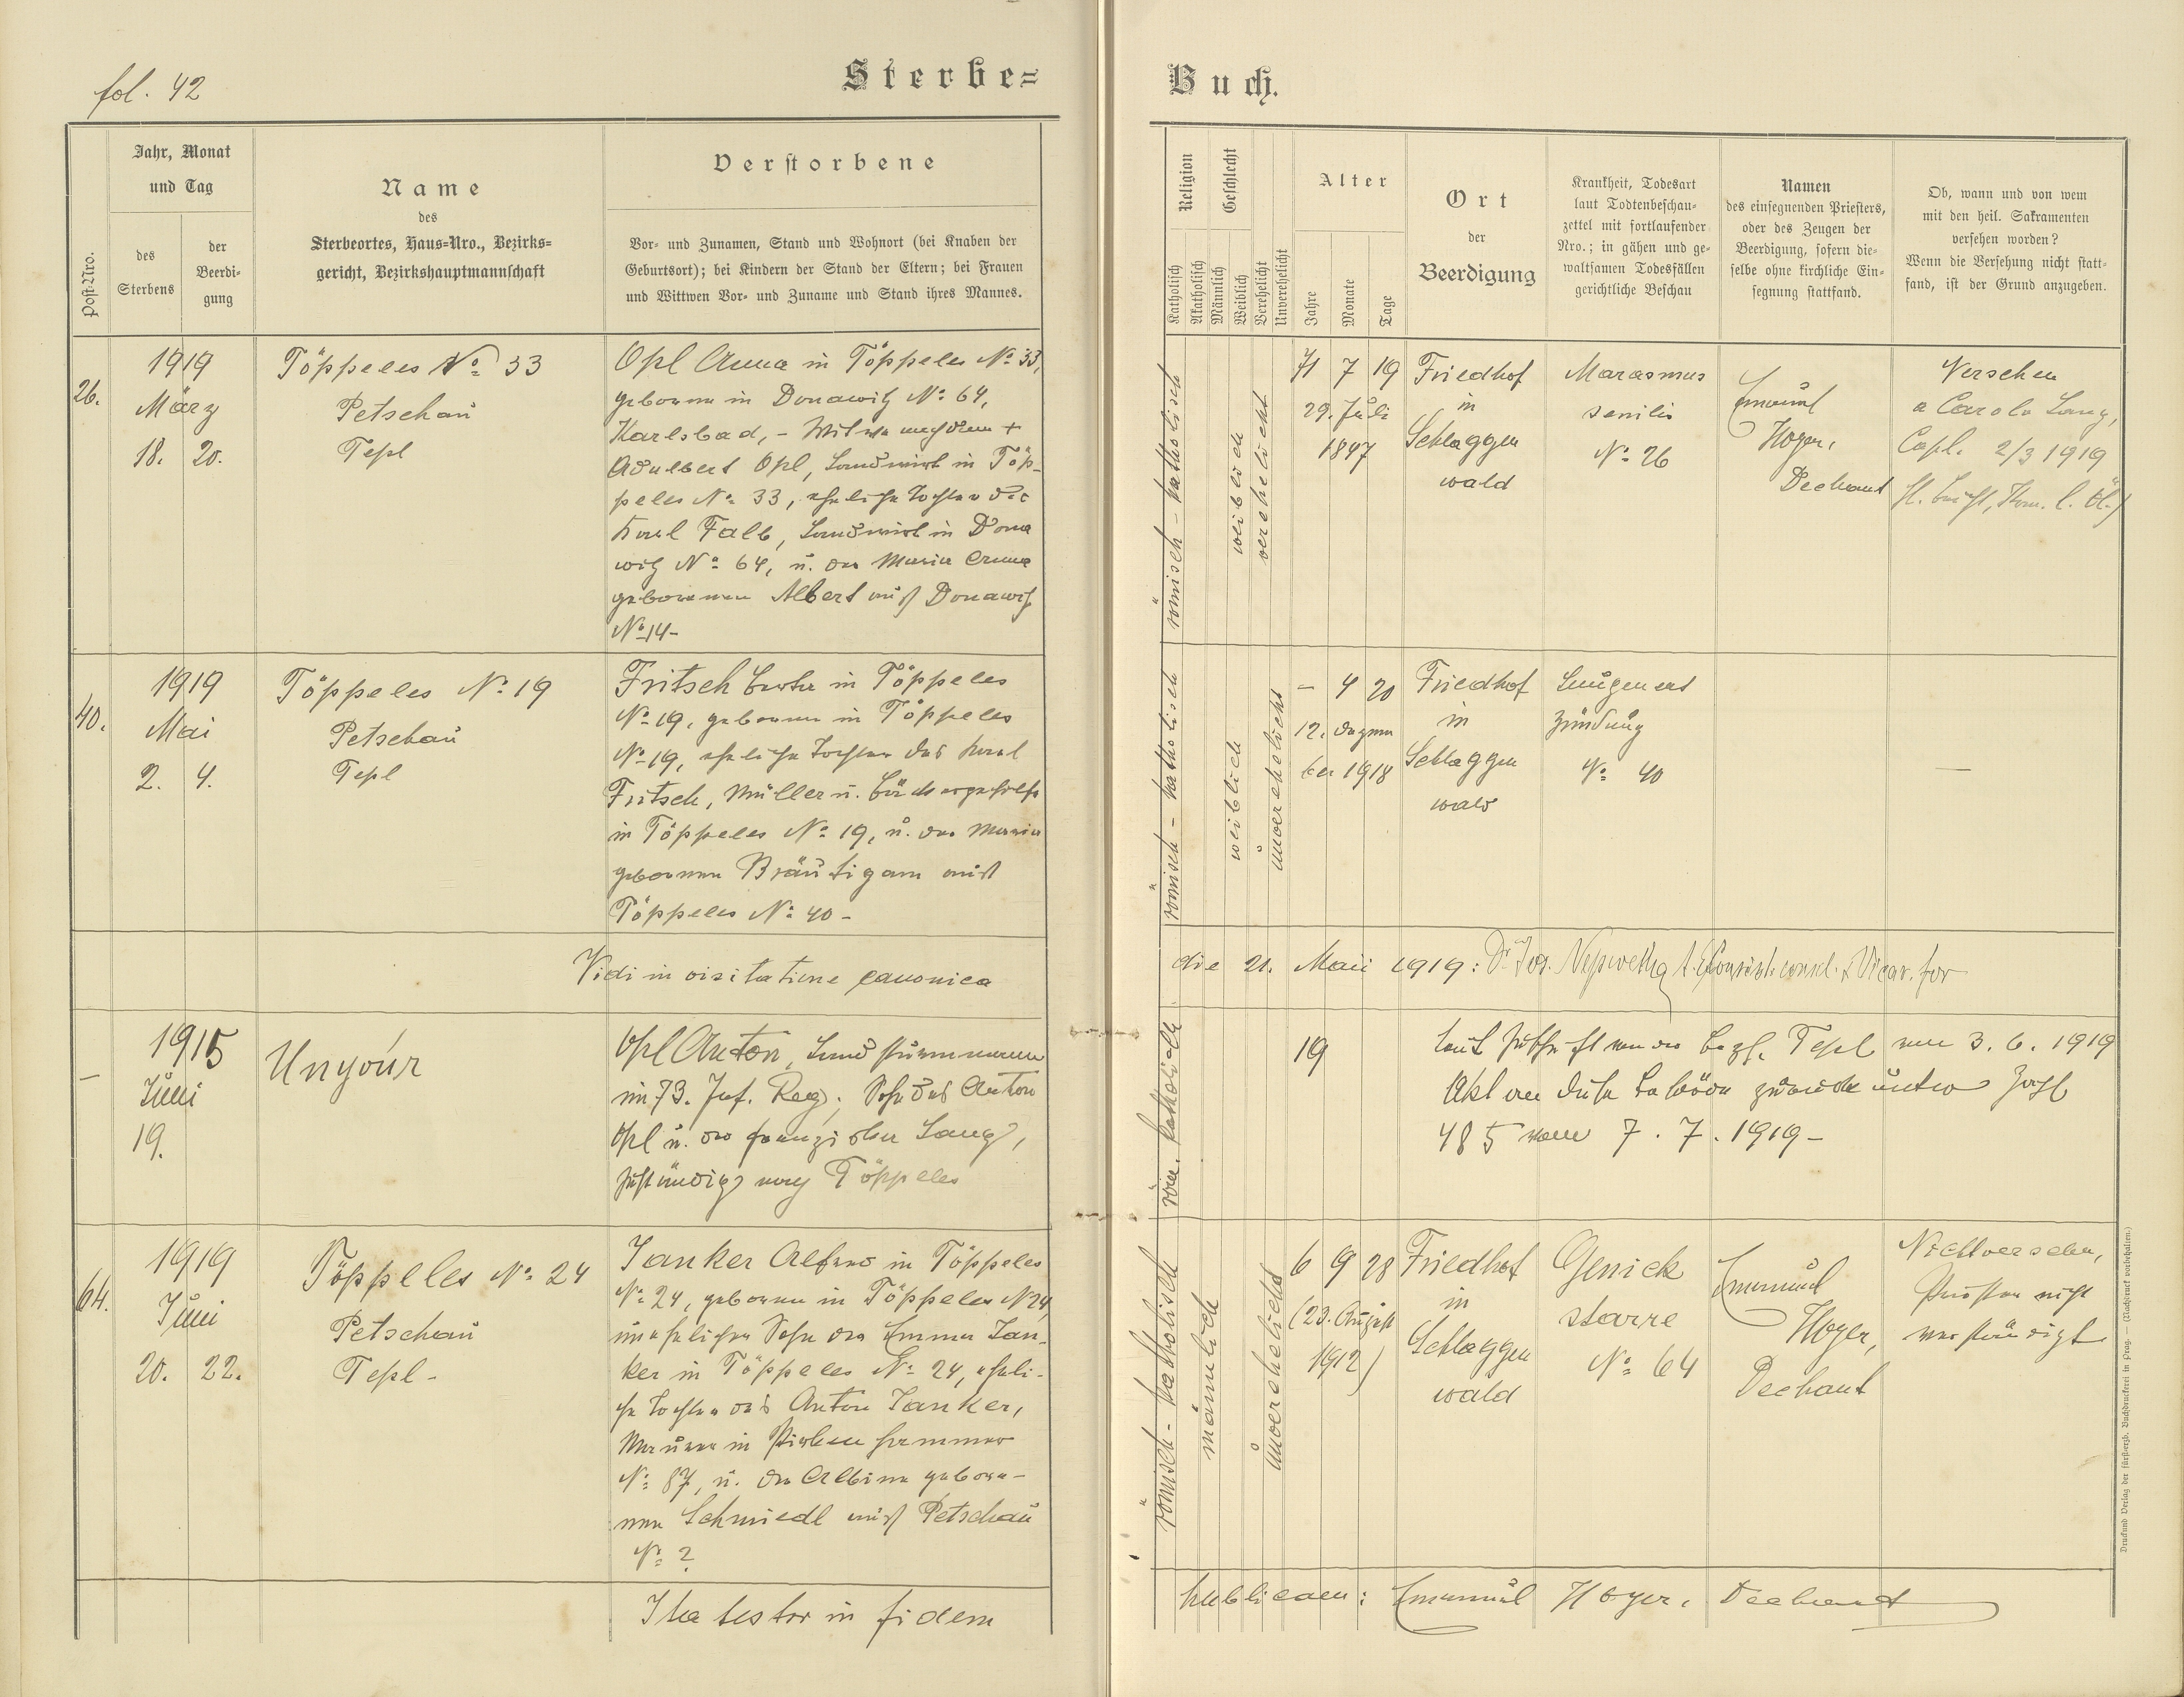 fol. 42
Sterbe=
Buch.
Post-Nro.
Jahr, Monat
und Tag
des
Sterbens
der
Beerdi-
gung
Name
des
Sterbeortes, Haus=Nro., Bezirks=
gericht, Bezirkshauptmannschaft
Verstorbene
Vor- und Zunamen, Stand und Wohnort (bei Knaben der
Geburtsort); bei Kindern der Stand der Eltern; bei Frauen
und Wittwen Vor- und Zuname und Stand ihres Mannes.
Religion
Katholisch
Akatholisch
Geschlecht
Männlich
Weiblich
Verehelicht
Unverehelicht
Alter
Jahre
Monate
Tage
Ort
der
Beerdigung
Krankheit, Todesart
laut Todtenbeschau-
zettel mit fortlaufender
Nro.; in gähen und ge-
waltsamen Todesfällen
gerichtliche Beschau
Namen
des einsegnenden Priesters,
oder des Zeugen der
Beerdigung, sofern die-
selbe ohne kirchliche Ein-
segnung stattfand.
Ob, wann und von wem
mit den heil. Sakramenten
versehen worden?
Wenn die Versehung nicht statt-
fand, ist der Grund anzugeben.
26.
1919
März
18. 20.
Töppeles № 33
Petschau
Tepl
Opl Anna in Töppeles № 33,
geboren in Donawitz № 64,
Karlsbad, - Witwe nach dem +
Adalbert Opl, Landwirt in Töp-
peles № 33, eheliche Tochter des
Karl Falb, Landwirt in Dona
witz № 64, u. der Maria Anna
geborenen Albert aus Donawitz
№ 14-
römisch - katholisch
weiblich
verehelicht
71 7 19
29. Juli
1847
Friedhof
in
Schlaggen
wald
Marasmus
senilis
№ 26
Emanuel
Hoyer,
Dechant
Versehen
a Carolo Lang,
Capl. 2/3 1919
40.
1919
Mai
2. 4.
Töppeles № 19
Petschau
Tepl
Fritsch Berta in Töppeles
№ 19, geboren in Töppeles
№ 19, eheliche Tochter des Karl
Fritsch, Müller u. Bäckergehilfe
in Töppeles № 19, u. der Maria
geborenen Bräutigam aus
Töppeles № 40 -
römisch - katholisch
weiblich
unverehelicht
- 4 20
12. Dezem
ber 1918
Friedhof
in
Schlaggen
wald
Lungenent
zündung
№ 40
—
Vidi in visitatione canonica
die 21. Maii 1919: Dr. Jos.
–
1915
Juni
19.
Ungour
Opl Anton, Landsturmmann
im 73. Inf. Reg., Sohn des Anton
Opl u. der Franziska Lang,
zuständig nach Töppeles
röm. katholisch
19
laut Zuschrift von der Bezh. Tepl vom 3. 6. 1919
Akt an diese Behörde zurück unter Zahl
485 vom 7. 7. 1919 -
64.
1919
Juni
20. 22.
Töppeles № 24
Petschau
Tepl -
Janker Alfred in Töppeles
№ 24, geboren in Töppeles № 24,
unehelicher Sohn der Emma Jan-
ker in Töppeles № 24, eheli-
che Tochter des Anton Janker,
Maurer in Pirkenhammer
№ 87, u. der Albina gebore-
nen Schmiedl aus Petschau
№ ?
römisch - katholisch
männlich
unverehelicht
6 9 28
(23. August
1912)
Friedhof
in
Schlaggen
wald
Genick
starre
№ 64
Emanuel
Hoyer,
Dechant
Nichtversehen,
Priester nicht
verständigt
Ita testor in fidem
publicam: Emanuel Hoyer, Dechant
Druck und Verlag der fürsterzb. Buchdruckerei in Prag. — (Nachdruck vorbehalten.)